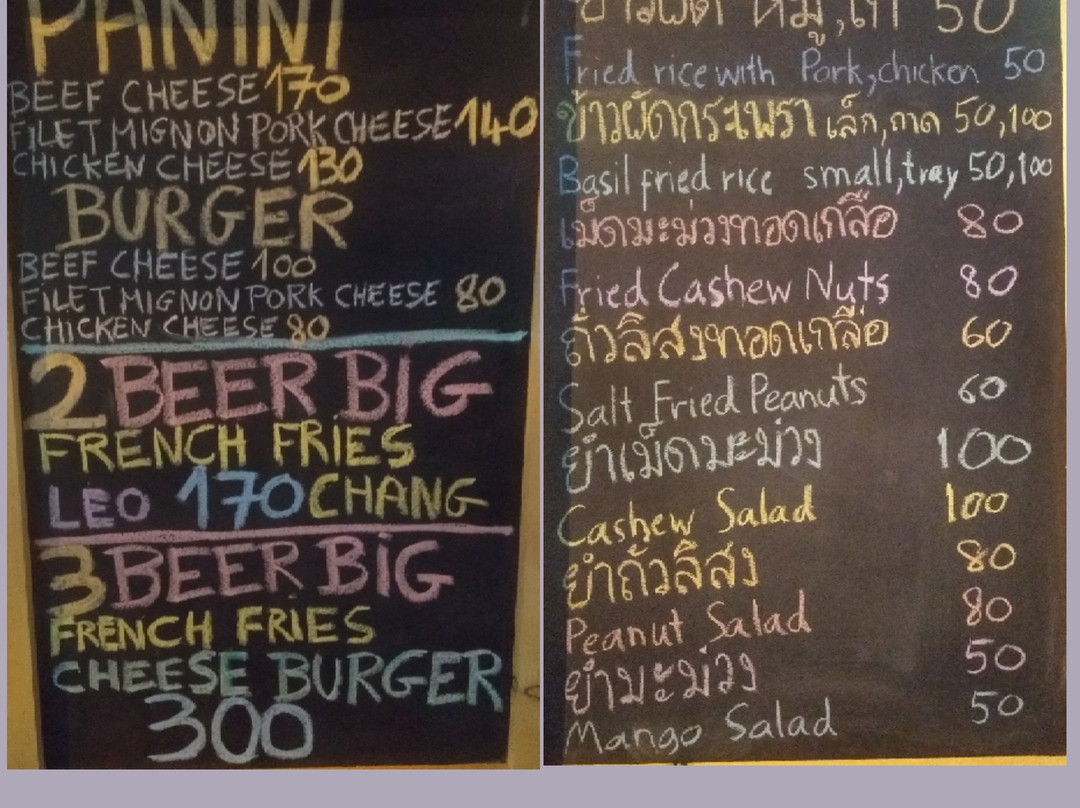 PANINI
BEEF CHEESE 170
FILET MIGNON PORK CHEESE 140
CHICKEN CHEESE 130
BURGER
BEEF CHEESE 100
FILET MIGNON PORK CHEESE 80
CHICKEN CHEESE 80
2 BEER BiG
FRENCH FRiES
LEO 170 CHANG
3 BEER BiG
FRENCH FRiES
CHEESE BURGER
300
ข้าวผัด หมู,ไก่ 50
Fried rice with Pork,chicken 50
ข้าวผัดกระเพรา เล็ก,ถาด 50,100
Basil fried rice small,tray 50,100
เม็ดมะม่วงทอดเกลือ 80
Fried Cashew Nuts 80
ถั่วลิสงทอดเกลือ 60
Salt Fried Peanuts 60
ยำเม็ดมะม่วง 100
Cashew Salad 100
ยำถั่วลิสง 80
Peanut Salad 80
ยำมะม่วง 50
Mango Salad 50